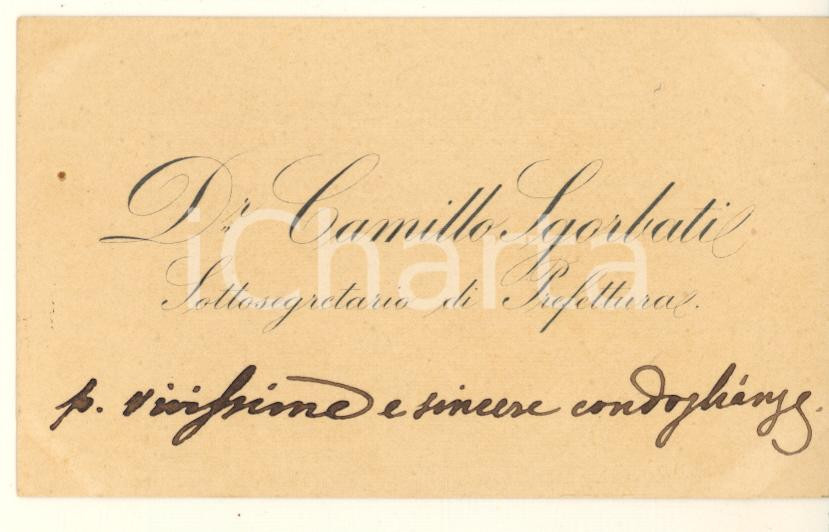 Dr Camillo Sgorbati
Sottosegretario di Prefettura.
iCharta
p. vivissime e sincere condoglianze.